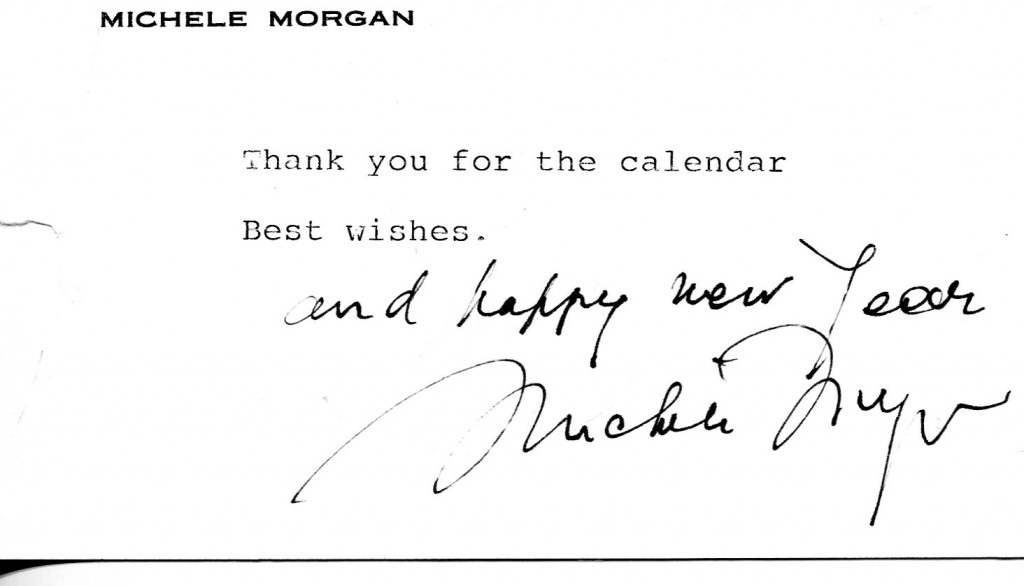 MICHELE MORGAN
Thank you for the calendar
Best wishes.
and happy new Year
Michèle Morgan